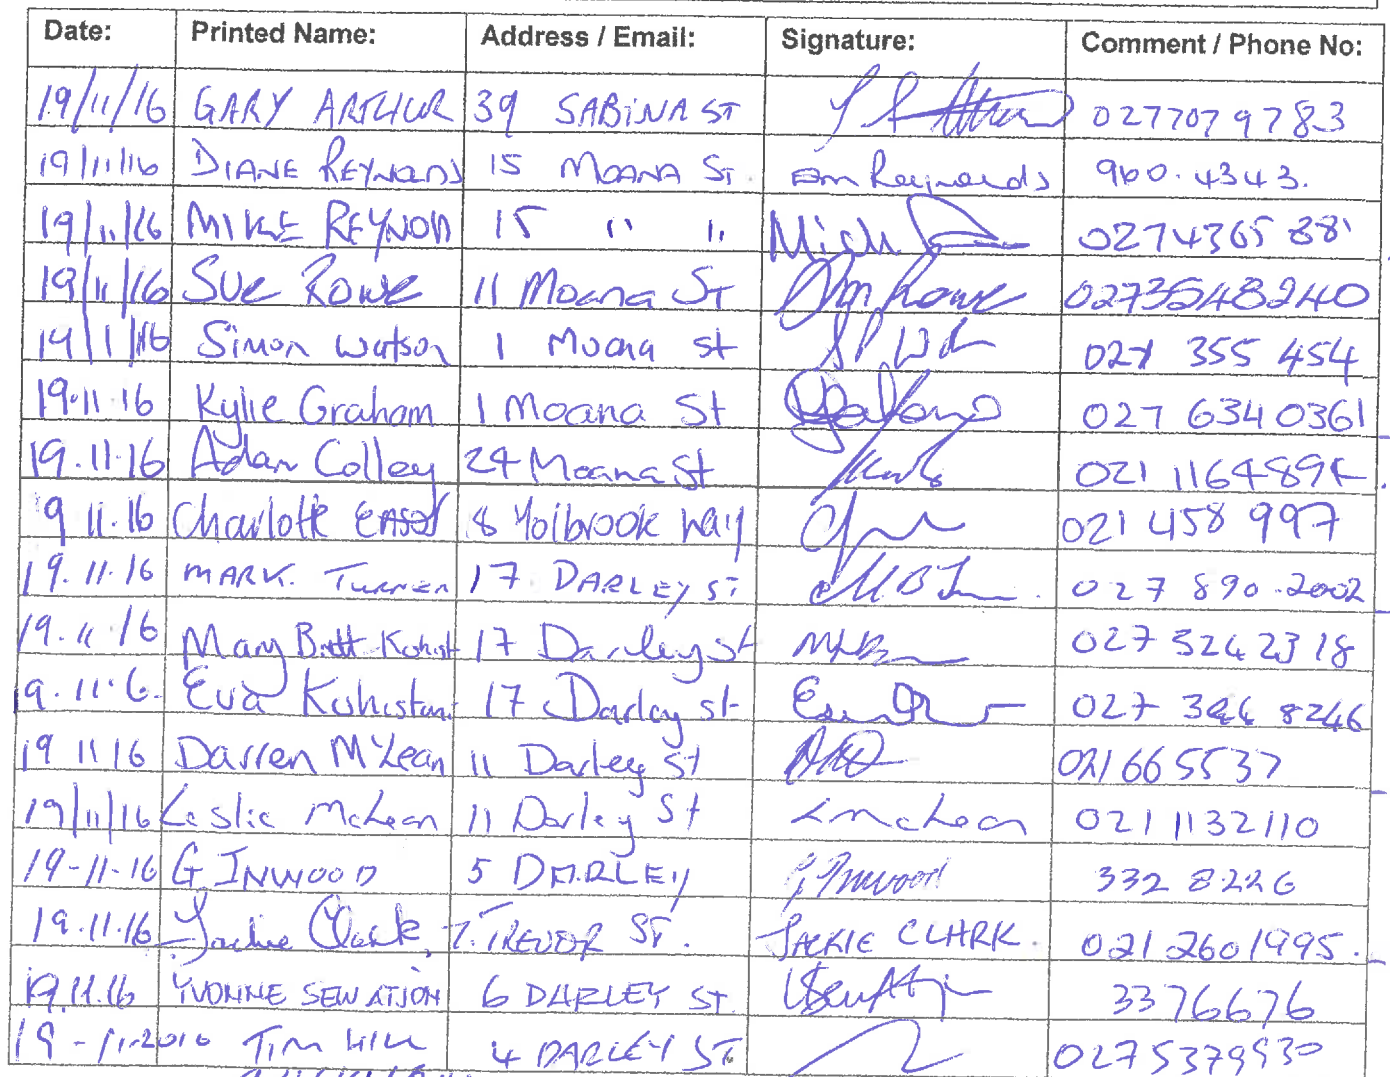 Date: Printed Name: Address / Email: Signature: Comment / Phone No:
19/11/16 GARY ARTHUR 39 SABINA ST 0277079783
19/11/16 DIANE REYNOLDS 15 MOANA ST. Dm Reynolds 960.4343.
19/11/16 MIKE REYNOLD 15 " " 0274365 881
19/11/16 SUE ROWE 11 Moana ST Rowe 02735248240
19/1/16 Simon Watson 1 Moana St 021 355 454
19.11.16 Kylie Graham 1 Moana St 027 6340361
19.11.16 Adan Colley 24 Moana St 021 116489
9 11.16 Charlotte 8 Holbrook Way 021 458 997
19.11.16 MARK. TURNER 17 DARLEY ST 027 890.2002
19.11 16 Mary Britt Kohist 17 Darley st 027 3242318
19.11.6. Eva Kohistani 17 Darley st 027 8246
19 11 16 Darren McLean 11 Darley St 021665537
19/11/16 Leslie McLean 11 Darley St L mcLean 021 1132110
19-11-16 G. INWOOD 5 DARLEY G Inwood 332 8226
19.11.16 Jackie Clark, 7. TREVOR ST. JACKIE CLARK. 021 2601995.
19.11.16 YVONNE SEWATJON 6 DARLEY ST. 3376676
19-11-2016 TIM HILL 4 DARLEY ST. 0275379930